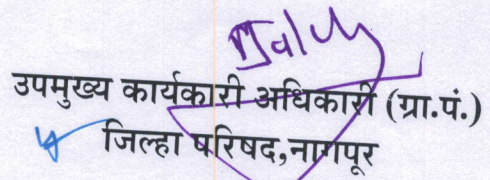 उपमुख्य कार्यकारी अधिकारी (ग्रा.पं.)
जिल्हा परिषद,नागपूर